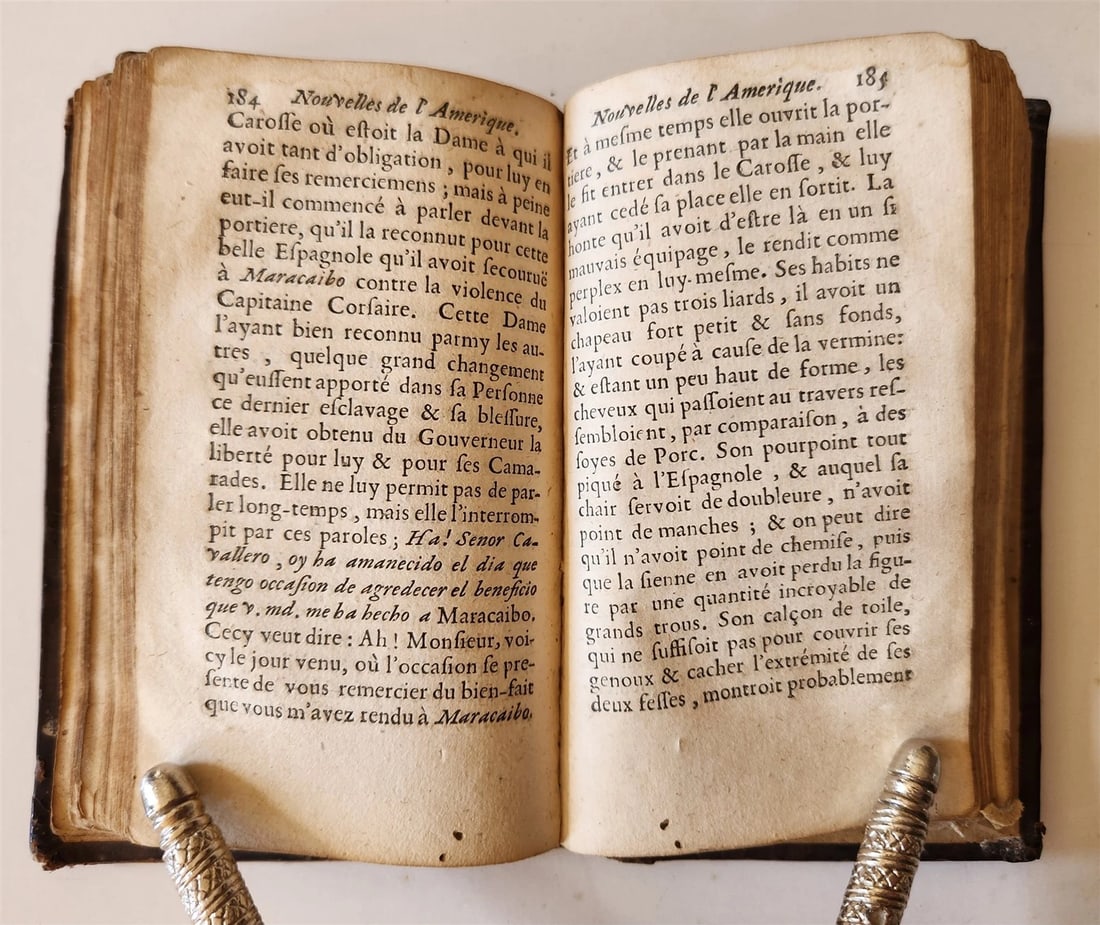 184 Nouvelles de l'Amerique.
Carosse où estoit la Dame à qui il
avoit tant d'obligation, pour luy en
faire ses remerciemens ; mais à peine
eut-il commencé à parler devant la
portiere, qu'il la reconnut pour cette
belle Espagnole qu'il avoit secouruë
à Maracaibo contre la violence du
Capitaine Corsaire. Cette Dame
l'ayant bien reconnu parmy les au-
tres , quelque grand changement
qu'eussent apporté dans sa Personne
ce dernier esclavage & sa blessure,
elle avoit obtenu du Gouverneur la
liberté pour luy & pour ses Cama-
rades. Elle ne luy permit pas de par-
ler long-temps , mais elle l'interrom-
pit par ces paroles ; Ha! Senor Ca-
vallero , oy ha amanecido el dia que
tengo occasion de agredecer el beneficio
que v. md. me ha hecho a Maracaibo.
Cecy veut dire : Ah ! Monsieur, voi-
cy le jour venu, où l'occasion se pre-
sente de vous remercier du bien-fait
que vous m'avez rendu à Maracaibo.
Nouvelles de l'Amerique. 185
Et à mesme temps elle ouvrit la por-
tiere, & le prenant par la main elle
le fit entrer dans le Carosse , & luy
ayant cedé sa place elle en sortit. La
honte qu'il avoit d'estre là en un si
mauvais équipage , le rendit comme
perplex en luy-mesme. Ses habits ne
valoient pas trois liards , il avoit un
chapeau fort petit & sans fonds,
l'ayant coupé à cause de la vermine:
& estant un peu haut de forme , les
cheveux qui passoient au travers res-
sembloient , par comparaison, à des
soyes de Porc. Son pourpoint tout
piqué à l'Espagnole , & auquel sa
chair servoit de doubleure , n'avoit
point de manches ; & on peut dire
qu'il n'avoit point de chemise, puis
que la sienne en avoit perdu la figu-
re par une quantité incroyable de
grands trous. Son calçon de toile,
qui ne suffisoit pas pour couvrir ses
genoux & cacher l'extrémité de ses
deux fesses , montroit probablement